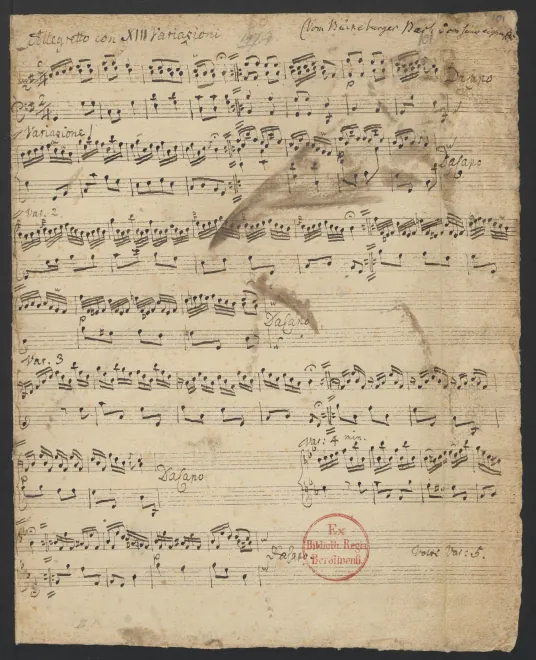 Allegretto con XIII Variazioni
(Vom Bückeburger Bach
101
DaCapo
Variazione 1
DaCapo
Var. 2
DaCapo
Var. 3
Var: 4 min.
DaCapo
Ex
Biblioth. Regia
Berolinensi.
DaCapo
Volti Var: 5.